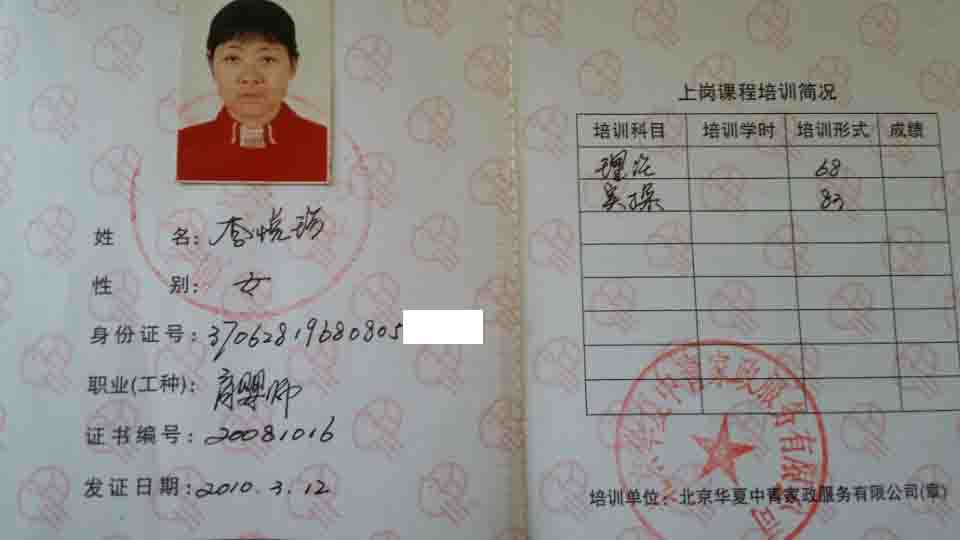 姓 名: 李悦
性 别: 女
身份证号: 37062819680805
职业(工种): 育婴师
证书编号: 20081016
发证日期: 2010.3.12
上岗课程培训简况
培训科目 培训学时 培训形式 成绩
理论 68
实操 83
培训单位: 北京华夏中青家政服务有限公司(章)
中青家政服务有限公司